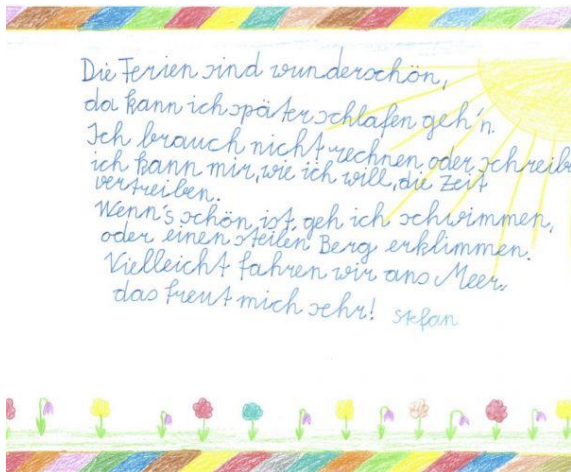 Die Ferien sind wunderschön,
da kann ich später schlafen geh'n.
Ich brauch nicht rechnen oder schreib
ich kann mir, wie ich will, die Zeit
vertreiben.
Wenn's schön ist, geh ich schwimmen,
oder einen steilen Berg erklimmen.
Vielleicht fahren wir ans Meer,
das freut mich sehr! Stefan